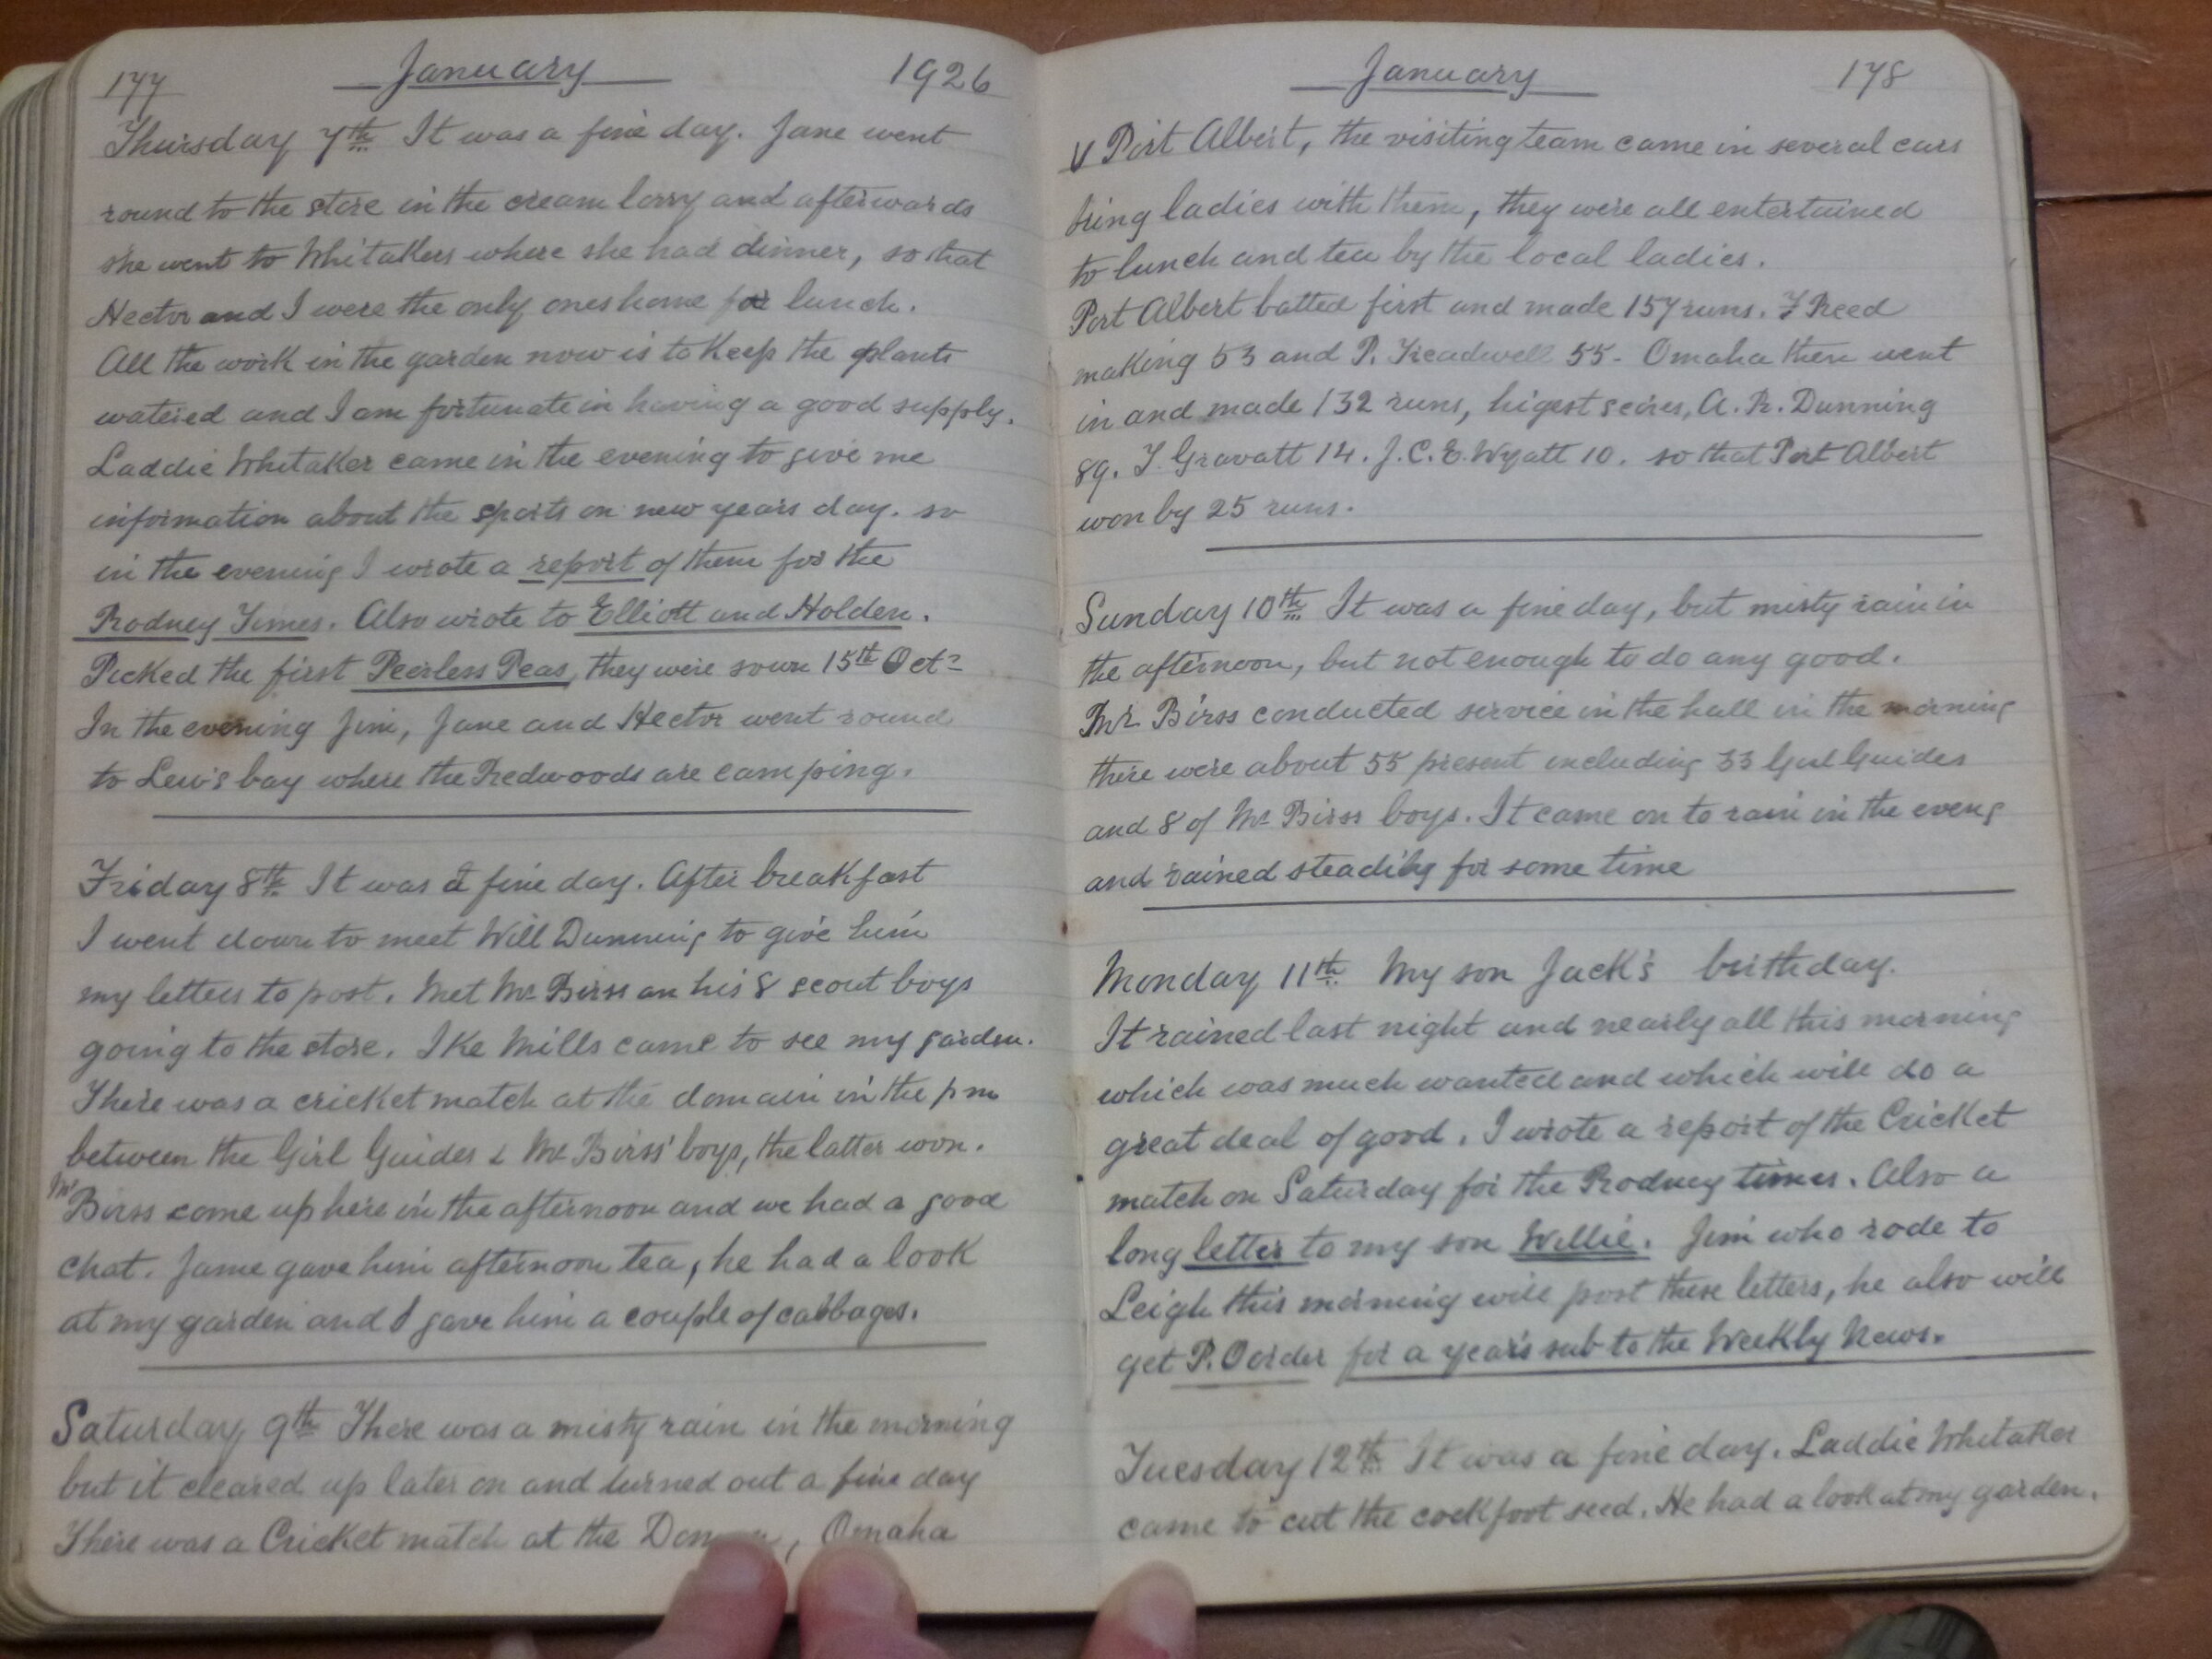 177 January 1926
Thursday 7th It was a fine day. Jane went
round to the store in the cream lorry and afterwards
she went to Whitakers where she had dinner, so that
Hector and I were the only ones home for lunch.
All the work in the garden now is to keep the plants
watered and I am fortunate in having a good supply.
Laddie Whitaker came in the evening to give me
information about the sports on new years day. so
in the evening I wrote a report of them for the
Rodney Times. Also wrote to Elliott and Holden.
Picked the first Peerless Peas, they were sown 15th Oct
In the evening Jim, Jane and Hector went round
to Lew's bay where the Redwoods are camping.
Friday 8th It was a fine day. After breakfast
I went down to meet Will Dunning to give him
my letters to post. Met Mr Birss an his 8 scout boys
going to the store. Ike Mills came to see my garden.
There was a cricket match at the domain in the pm
between the Girl Guides & Mr Birss' boys, the latter won.
Mr Birss come up here in the afternoon and we had a good
chat. Jame gave him afternoon tea, he had a look
at my garden and I gave him a couple of cabbages.
Saturday 9th There was a misty rain in the morning
but it cleared up later on and turned out a fine day
There was a Cricket match at the , Omaha
January 178
V Port Albert, the visiting team came in several cars
bring ladies with them, they were all entertained
to lunch and tea by the local ladies.
Port Albert batted first and made 157 runs. F Reed
making 53 and P. Treadwell 55 - Omaha then went
in and made 132 runs, higest scires, A. R. Dunning
89. T. Gravatt 14. J.C.E. Wyatt 10. so that Port Albert
won by 25 runs.
Sunday 10th It was a fine day, but misty rain in
the afternoon, but not enough to do any good.
Mr Birss conducted service in the hall in the morning
there were about 55 present including 33 Girl Guides
and 8 of Mr Birss boys. It came on to rain in the eveng
and rained steadily for some time
Monday 11th My son Jack's birthday.
It rained last night and nearly all this morning
which was much wanted and which will do a
great deal of good. I wrote a report of the Cricket
match on Saturday for the Rodney times. Also a
long letter to my son Willie. Jim who rode to
Leigh this morning will post these letters, he also will
get P. Oorder for a year's sub to the Weekly News.
Tuesday 12th It was a fine day. Laddie Whitaker
came to cut the cockfoot seed. He had a look at my garden.